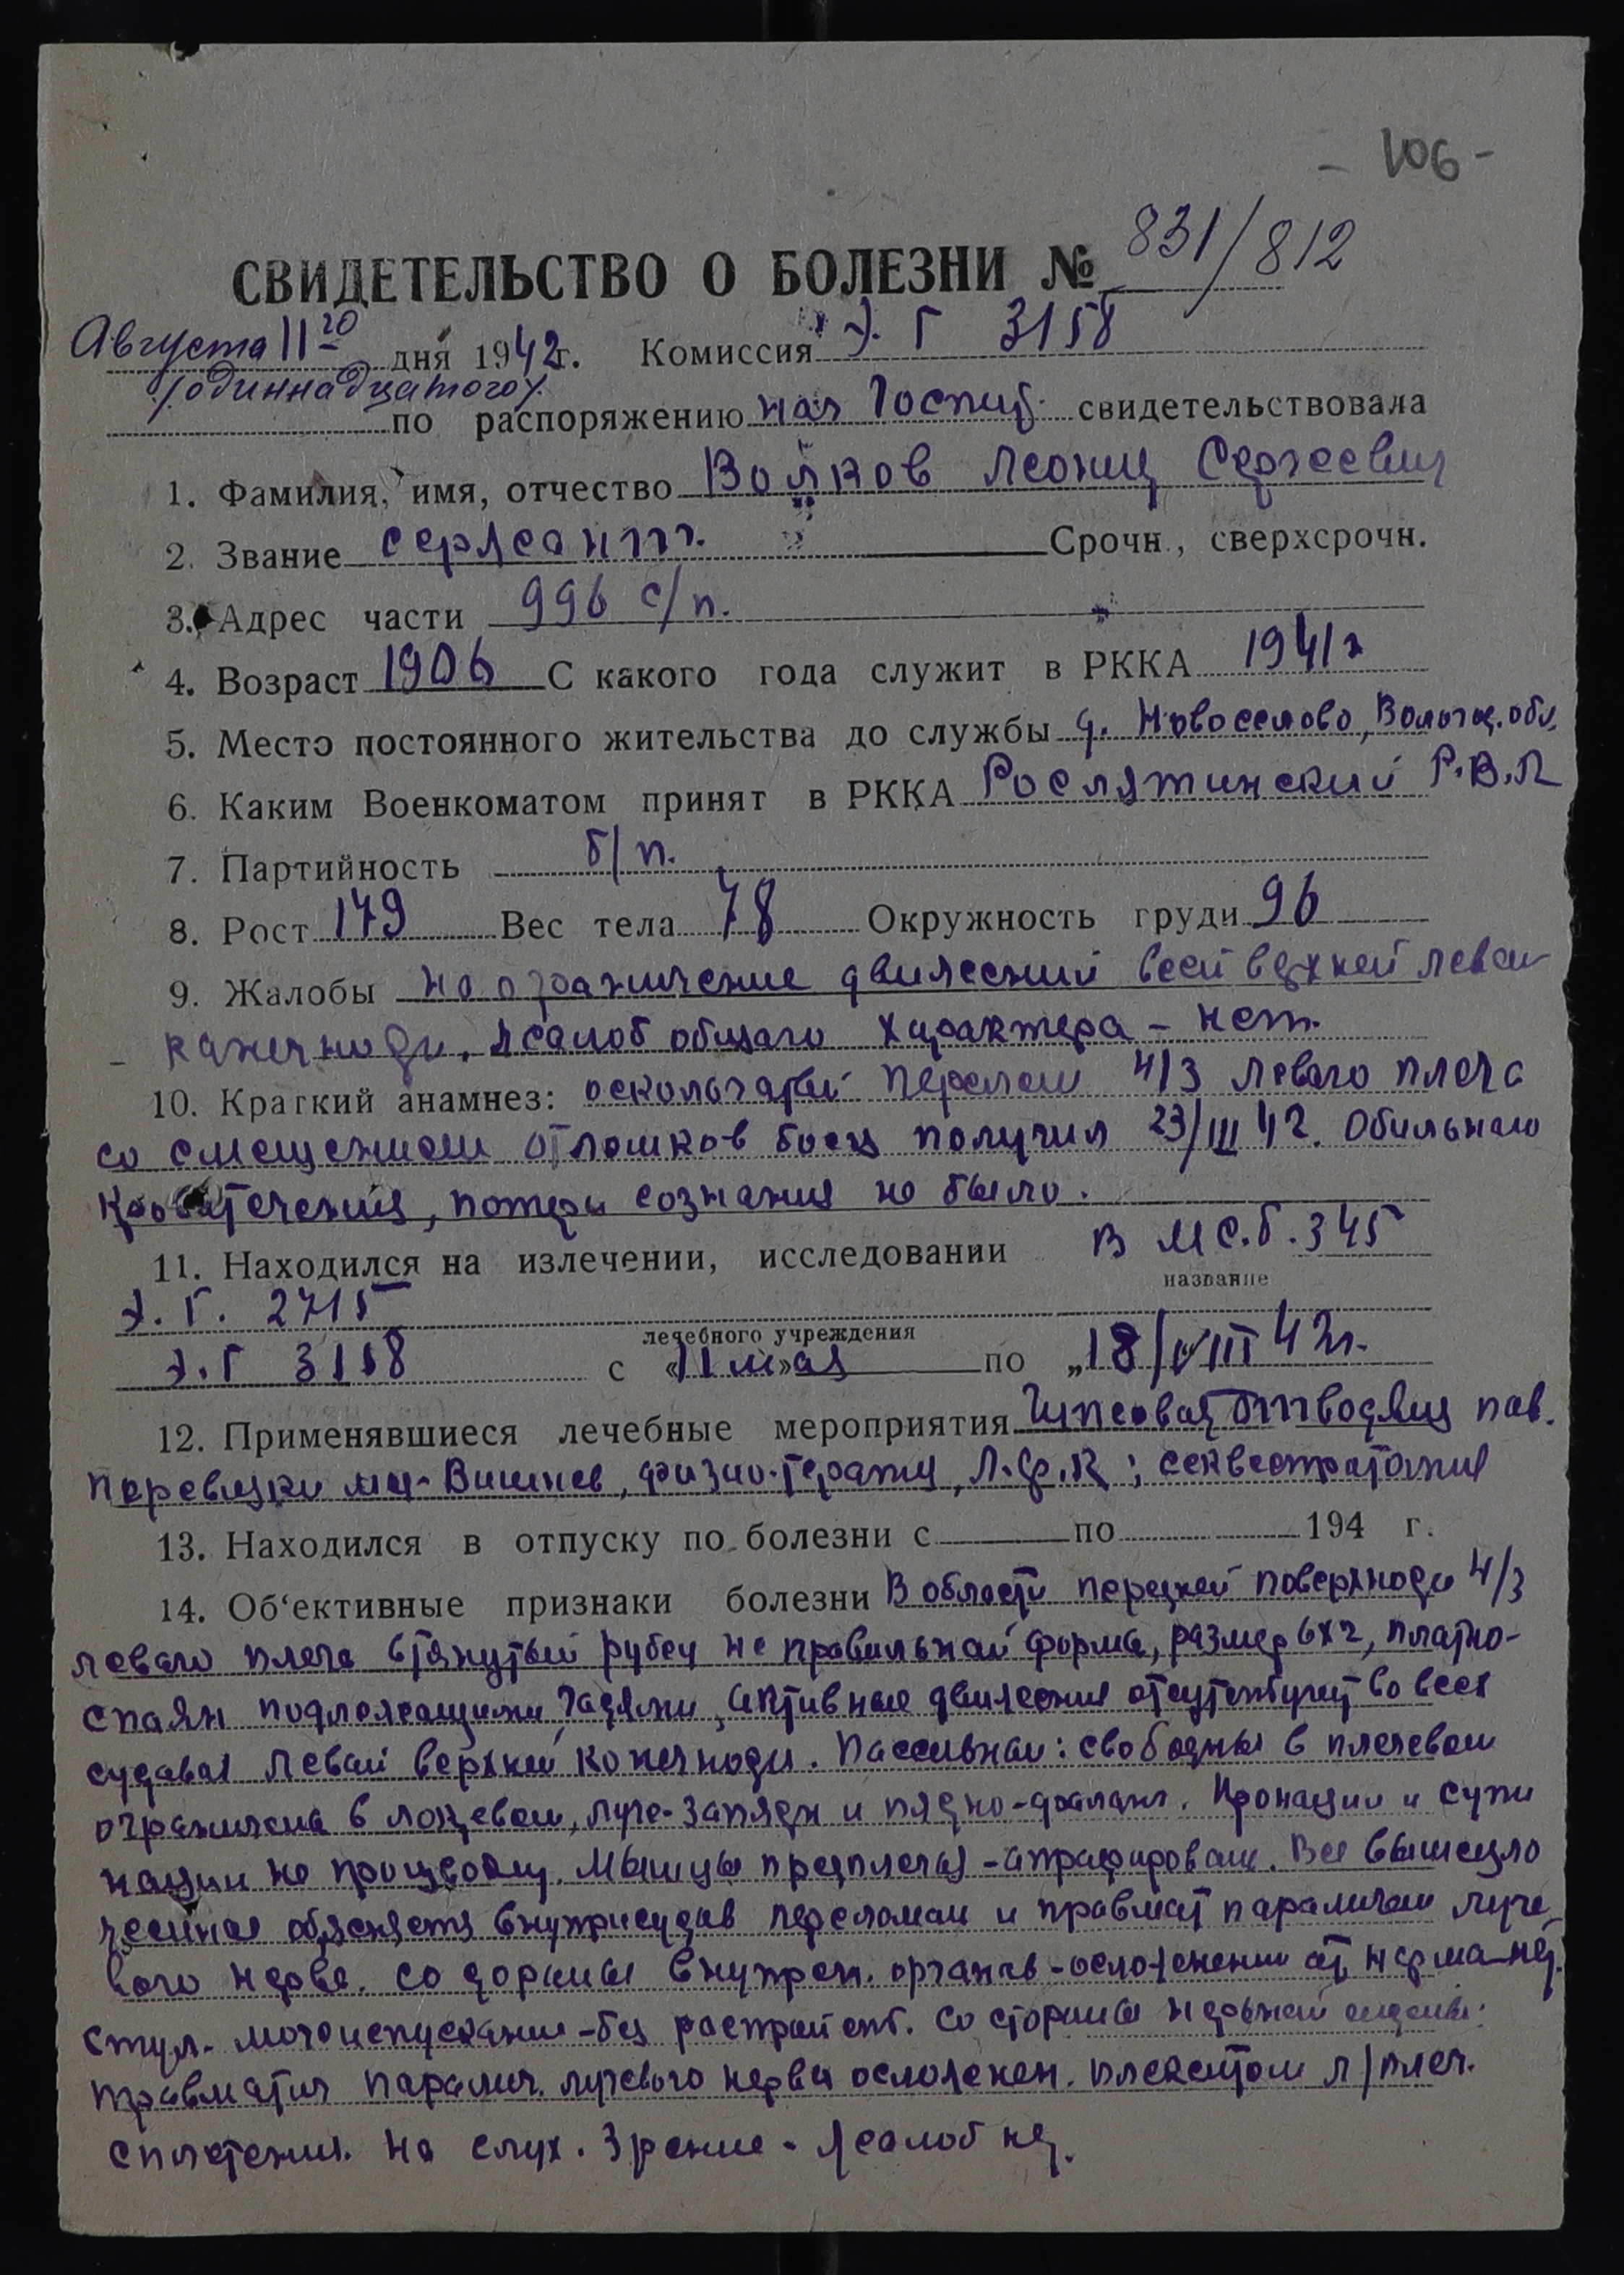 - 106 -
СВИДЕТЕЛЬСТВО О БОЛЕЗНИ № 831/812
Августа 11го дня 1942г. Комиссия Э. Г 3158
/одиннадцатого/
по распоряжению нач Госпит. свидетельствовала
1. Фамилия, имя, отчество Волков Леонид Сергеевич
2. Звание сержант. Срочн., сверхсрочн.
3. Адрес части 996 с/п.
4. Возраст 1906 С какого года служит в РККА 1941г
5. Место постоянного жительства до службы д. Новоселово, Вологод. обл.
6. Каким Военкоматом принят в РККА Рослятинский Р.В.К
7. Партийность б/п.
8. Рост 179 Вес тела 78 Окружность груди 96
9. Жалобы на ограничение движений всей верхней левой
конечности. Жалоб общего характера - нет.
10. Краткий анамнез: оскольчатый перелом н/3 левого плеча
со смещением отломков боец получил 23/III 42. Обильного
кровотечения, потери сознания не было.
11. Находился на излечении, исследовании в МС.Б. 345
название
Э. Г. 2715
лечебного учреждения
Э. Г 3158 с «11 м»ая по „18/VIII 42г.
12. Применявшиеся лечебные мероприятия Гипсовая отводящ пов.
перевязки мази Вишнев, физио-терапия, Л.Ф.К; секвестротомия
13. Находился в отпуску по болезни с по 194 г.
14. Об‘ективные признаки болезни В области передней поверхности н/3
левого плеча втянутый рубец не правильной формы, размер 6х2, плотно-
спаян подлежащими тканями, активные движения отсутствуют во всех
суставах левой верхней конечности. Пассивные: свободны в плечевом
ограничена в локтевом, луче-запястн и пястно-фаланг. Пронации и супи
нации не производит. Мышцы предплечья - атрофированы. Все вышеизло
женное объясняется внутрисустав переломом и травмат параличом луче-
вого нерва. Со стороны внутрен. органов - осложнении от нормы нет.
Стул. мочеиспускание - без расстройств. Со стороны нервной системы:
травматич паралич. лучевого нерва осложнен. плекситом л/плеч.
сплетения. На слух. Зрение - жалоб нет.